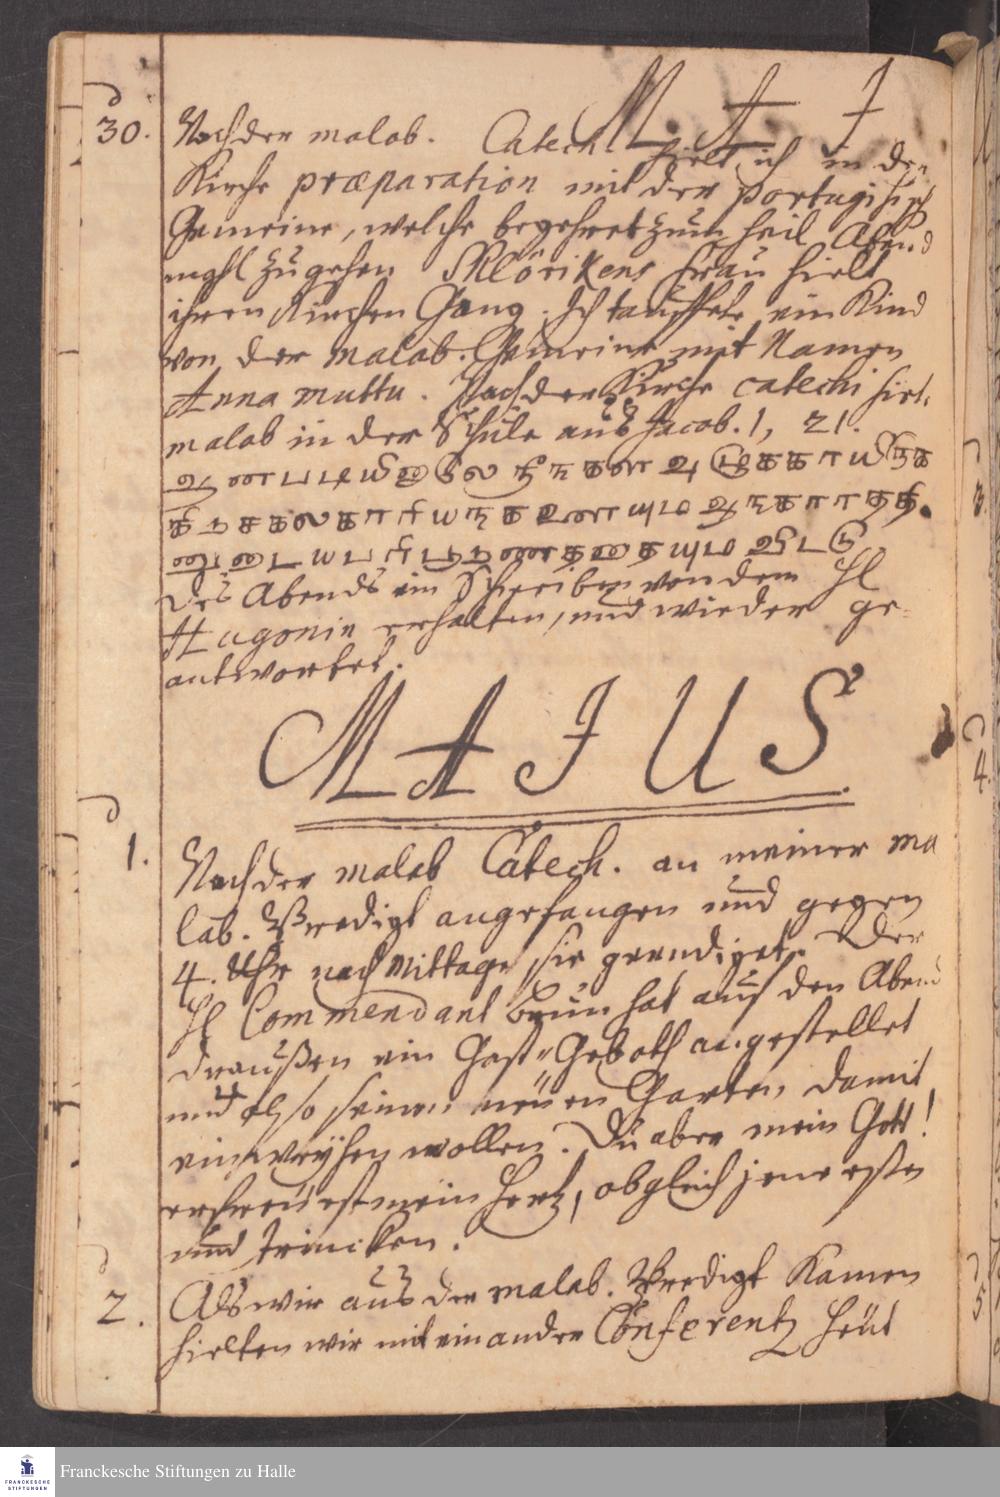 M A J
30. Nach der malab. Catech. hielt ich in der
Kirche præparation mit der portugisisch
Gemeine, welche begehret zum heil Abend
mahl zu gehen Klörikens Frau hielt
ihren Kirchen Gang. Ich tauffete ein Kind
von der malab. Gemeine mit Namen
Anna muttu. Nach der Kirche catechisiret
malab in der Schule aus Jacob. 1, 21.
ஆனபடியினாலே நீங்கள அழுககாயிருக
கிறசகலகாரியஙகளையும ஆஙகாரதததி
னுடைய
விடடு
Des Abends ein Schreiben von dem H
Hugonin erhalten, und wieder ge-
antwortet.
MAJUS.
1. Nach der malab Catech. an meiner ma
lab. Predigt angefangen und gegen
4. Uhr nach Mittage sie geendiget. Der
H Commendant Brun hat auf den Abend
draußen ein Gast-Geboth angestellet
und also seinen neuen Garten damit
einweyhen wollen. Du aber mein Gott!
erfreuest mein Hertz, obgleich jene essen
und trincken.
2. Als wir aus der malab. Predigt kamen
hielten wir mit einander Conferentz heut
Franckesche Stiftungen zu Halle
FRANCKESCHE
STIFTUNGEN